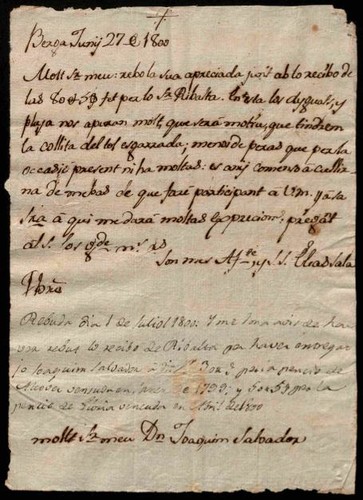 Berga Junij 27 de 1800
Molt Sr. meu: rebo la sua apreciada junt ab lo recibo de
las 80 ₶ 5 ß fet per lo Sr. Ribalta. En esta los
pluja nos apuran molt, que será motiu, que tindrem
la collita del tot esgarrada; menos de peras que per la
occasió present ni ha moltas: est any comensa a
na de de que faré participant a Vm. y a sa
Sra. á qui me dará moltas expresions, pregant
al Sr. los gde. ms. as.
Son mes Afte. y S. S. Elias Sala
Rebuda dia 1 de Juliol 1800. Y me dona avis de ha
ver rebut lo recibo de Ribalta per haver entregat
Jo Joaquim Salvador per la pensió de
vensuda en 1799; y per la
pensió de vensuda en Abril de 1800
Molt Sr. meu Dn. Joaquim Salvador